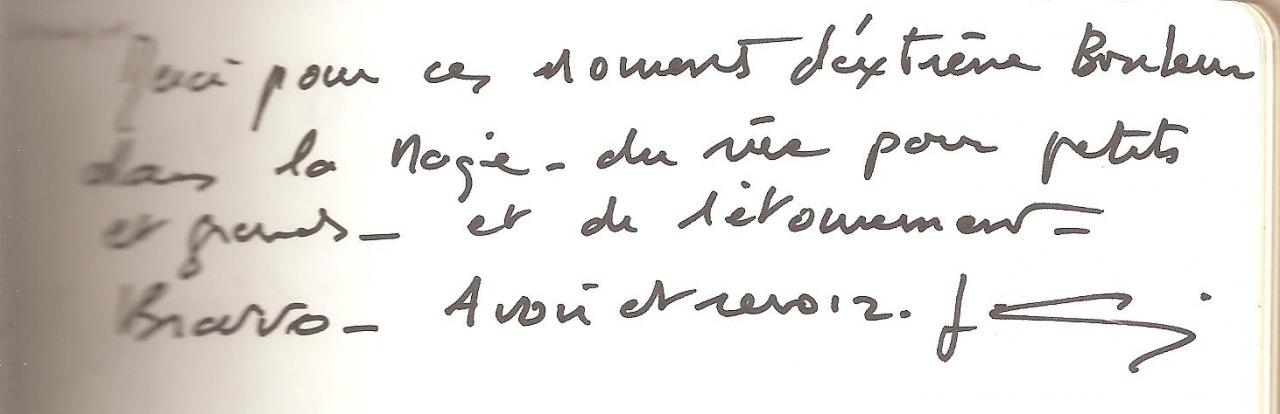 Merci pour ces moments d'extrême Bonheur
dans la Magie - du rêve pour petits
et grands - et de l'étonnement -
Bravo - A voir et revoir.